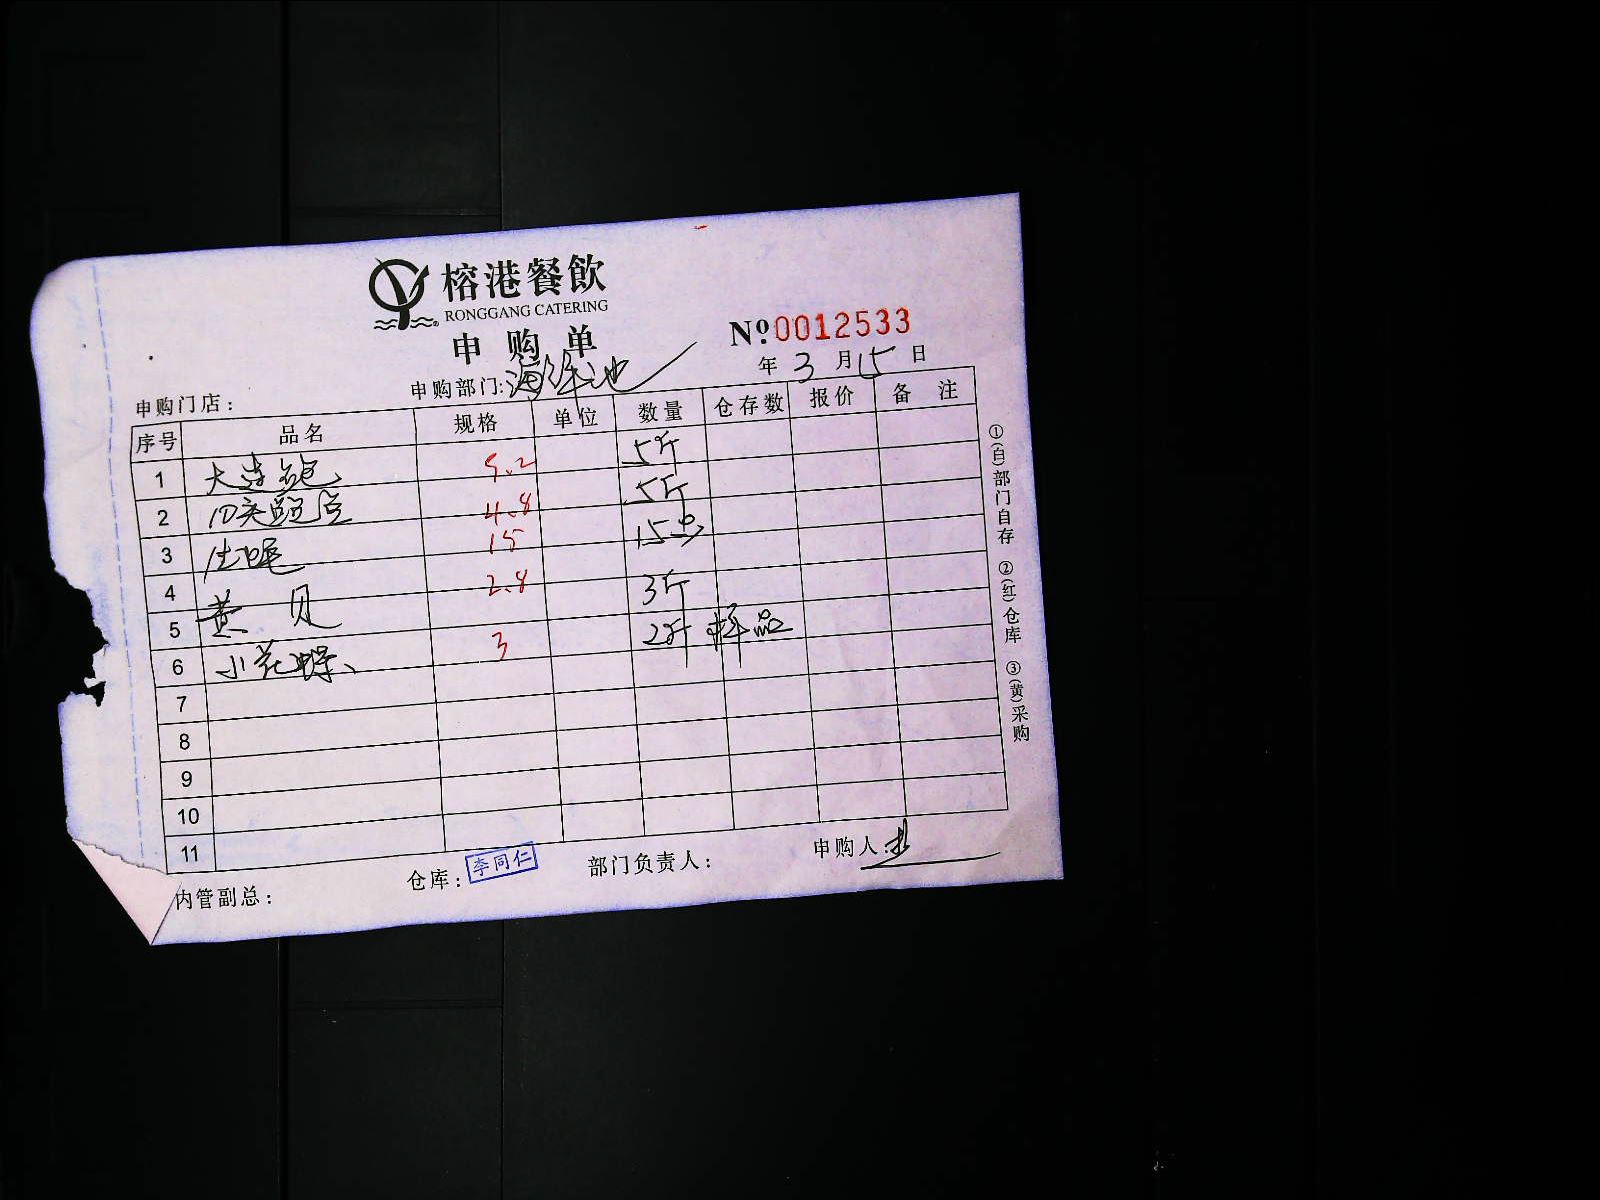 榕港餐飲
RONGGANG CATERING
申购单
№0012533
年 3 月 15 日
申购门店: 申购部门:海鲜池
序号 品名 规格 单位 数量 仓存数 报价 备 注
1 大连鲍 5.2 5斤
2 4.8 5斤
3 15 15
4 黄贝 2.8 3斤
5 小花螺 3 2斤 样品
6
7
8
9
10
11
①(白)部门自存 ②(红)仓库 ③(黄)采购
内管副总: 仓库: 李同仁 部门负责人: 申购人: